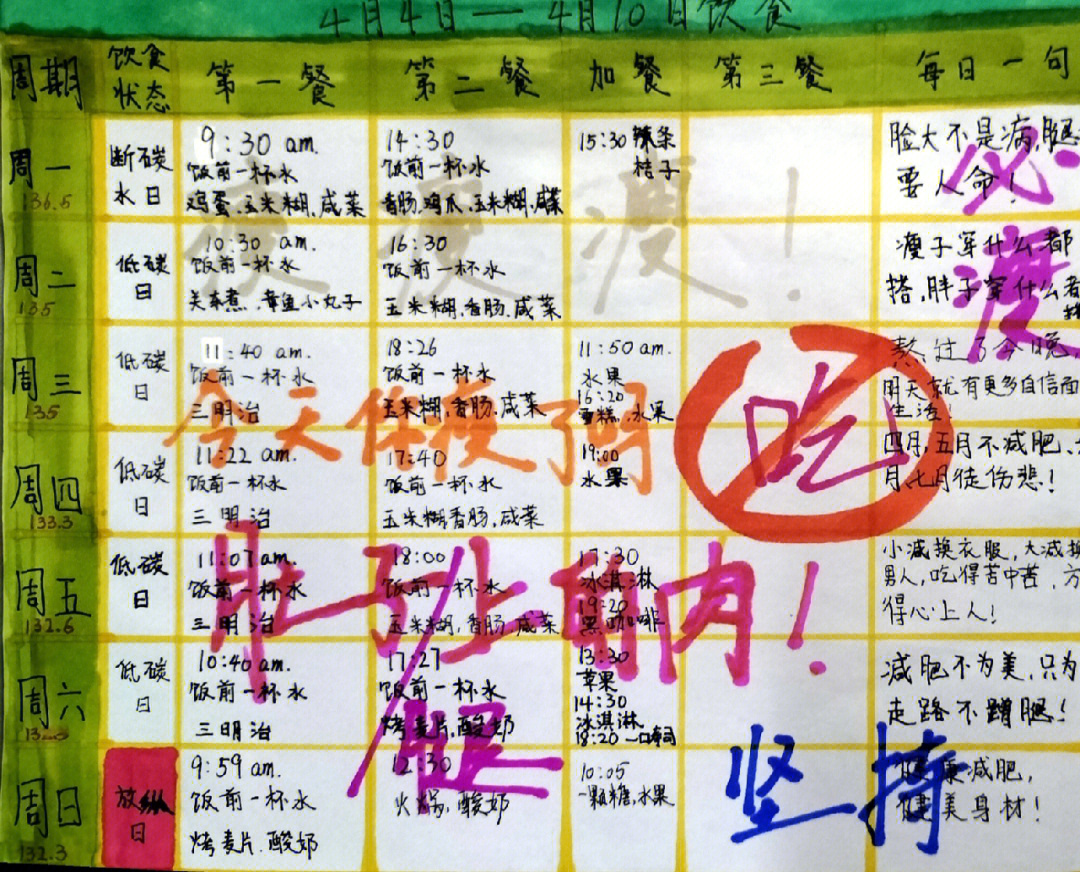 4月4日—4月10日饮食
周期
饮食
状态
第一餐
第二餐
加餐
第三餐
每日一句
周一
136.5
断碳
水日
9:30 am.
饭前一杯水
鸡蛋、玉米糊、咸菜
14:30
饭前一杯水
香肠、鸡爪、玉米糊、咸菜
15:30 辣条
桔子
脸大不是病,腿
要人命!
周二
135
低碳
日
10:30 am.
饭前一杯水
关东煮、章鱼小丸子
16:30
饭前一杯水
玉米糊,香肠.咸菜
瘦子穿什么都
搭,胖子穿什么都
周三
135
低碳
日
11:40 am.
饭前一杯水
三明治
18:26
饭前一杯水
玉米糊,香肠.咸菜
11:50 am.
水果
16:20
蛋糕、水果
熬过了今晚,
明天就有更多自信面
生活!
周四
133.3
低碳
日
11:22 am.
饭前一杯水
三明治
17:40
饭前一杯水
玉米糊,香肠、咸菜
19:00
水果
四月,五月不减肥、
月七月徒伤悲!
周五
132.6
低碳
日
11:07 am.
饭前一杯水
三明治
18:00
饭前一杯水
玉米糊,香肠.咸菜
17:30
冰淇淋
19:20
黑咖啡
小减换衣服,大减换
男人,吃得苦中苦,方
得心上人!
周六
低碳
日
10:40 am.
饭前一杯水
三明治
17:27
饭前一杯水
烤麦片,酸奶
13:30
苹果
14:30
冰淇淋
18:20 一口寿司
减肥不为美,只为
走路不蹭腿!
周日
132.3
放纵
日
9:59 am.
饭前一杯水
烤麦片.酸奶
12:30
火锅,酸奶
10:05
一颗糖,水果
健康减肥,
健美身材!
瘦瘦瘦!
必
瘦
今天你瘦了吗
吃
肚子上有肉!
腿
坚持